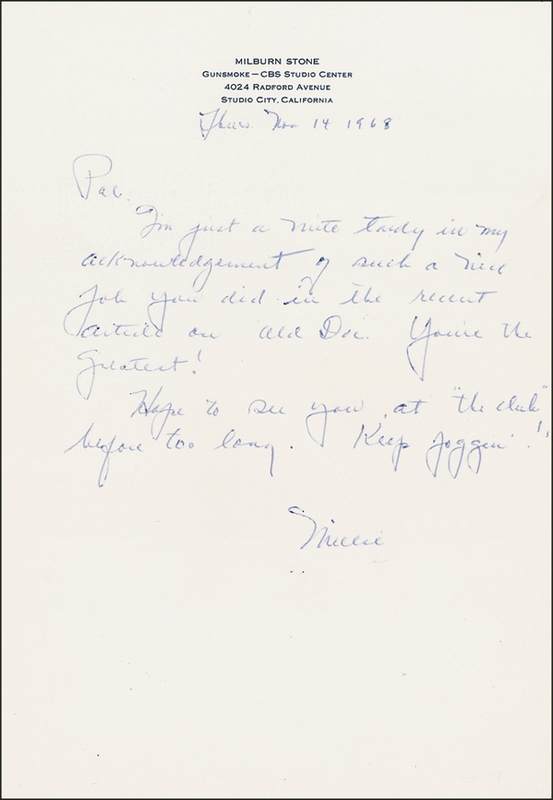 MILBURN STONE
GUNSMOKE — CBS STUDIO CENTER
4024 RADFORD AVENUE
STUDIO CITY, CALIFORNIA
Thurs. Nov 14 1968
I'm just a mite tardy in my
acknowledgement of such a nice
job you did in the recent
article on old Doc. You're the
Greatest!
Hope to see you at "the club"
before too long. Keep joggin'!!
Millie